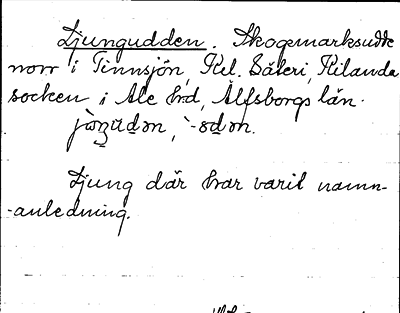 Ljungudden. Skogsmarksudde
norr i Tinnsjön, Kel. Säteri, Kilanda
socken i Ale hrd, Älfsborgs län.
Ljung där har varit namn-
-anledning.